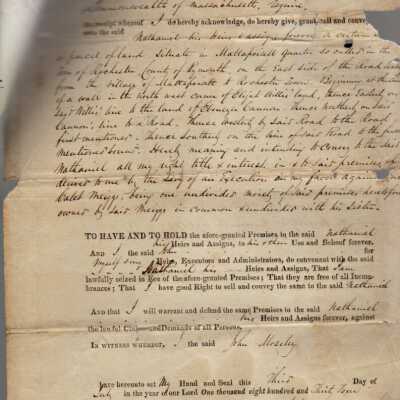 Commonwealth of Massachusetts, Esquire,
receipt whereof I do hereby acknowledge, do hereby give, grant, sell and convey
unto the said Nathaniel his heirs & assigns forever a certain
parcel of land situate in Mattapoisett Quarter so called in the
Town of Rochester County of Plymouth on the East side of the Road leading
from the village of Mattapoisett to Rochester Town. Beginning at the
of a wall in the north west corner of Elijah Willis' land, thence Easterly on
said Willis' line to the land of Ebenezer Cannon, thence northerly on said
Cannon's line to a Road, thence westerly by said Road to the Road
first mentioned. Thence southerly on the line of said Road to the first
mentioned bound. Hereby meaning and intending to convey to the said
Nathaniel all my right title & interest, in & to said premises
me by the levy of an Execution in my favor against
Meiggs, being one undivided moiety of said premises heretofore
owned by said Meiggs in common & undivided with his Sister.
TO HAVE AND TO HOLD the afore-granted Premises to the said Nathaniel
his Heirs and Assigns, to his & their Use and Behoof forever.
AND I the said John for
myself my Heirs, Executors and Administrators, do convenant with the said
Nathaniel his Heirs and Assigns, That I am
lawfully seized in Fee of the afore-granted Premises; That they are free of all Incum-
brances; That I have good Right to sell and convey the same to the said Nathaniel
And that I will warrant and defend the same Premises to the said Nathaniel
his Heirs and Assigns forever, against
the lawful Claims and Demands of all Persons.
IN WITNESS WHEREOF, I the said John Moseley
have hereunto set My Hand and Seal this Third Day of
July in the year of our Lord One thousand eight hundred and Thirty